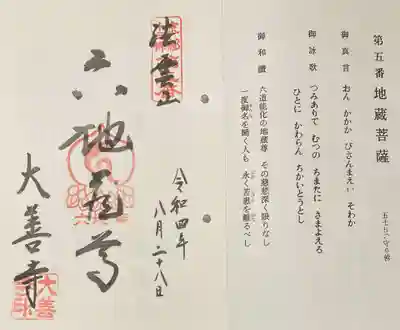 第五番 地蔵菩薩
御真言 おん かかか びさんまえい そわか
御詠歌 つみありて むつの ちまたに さまよえる
ひとに かわらん ちかいとうとし
御和讃 六道能化の地蔵尊 その慈悲深く限りなし
一度御名を聞く人も 永く苦患を離るべし
令和四年
八月二十八日
法雲山
六地蔵尊
大善寺